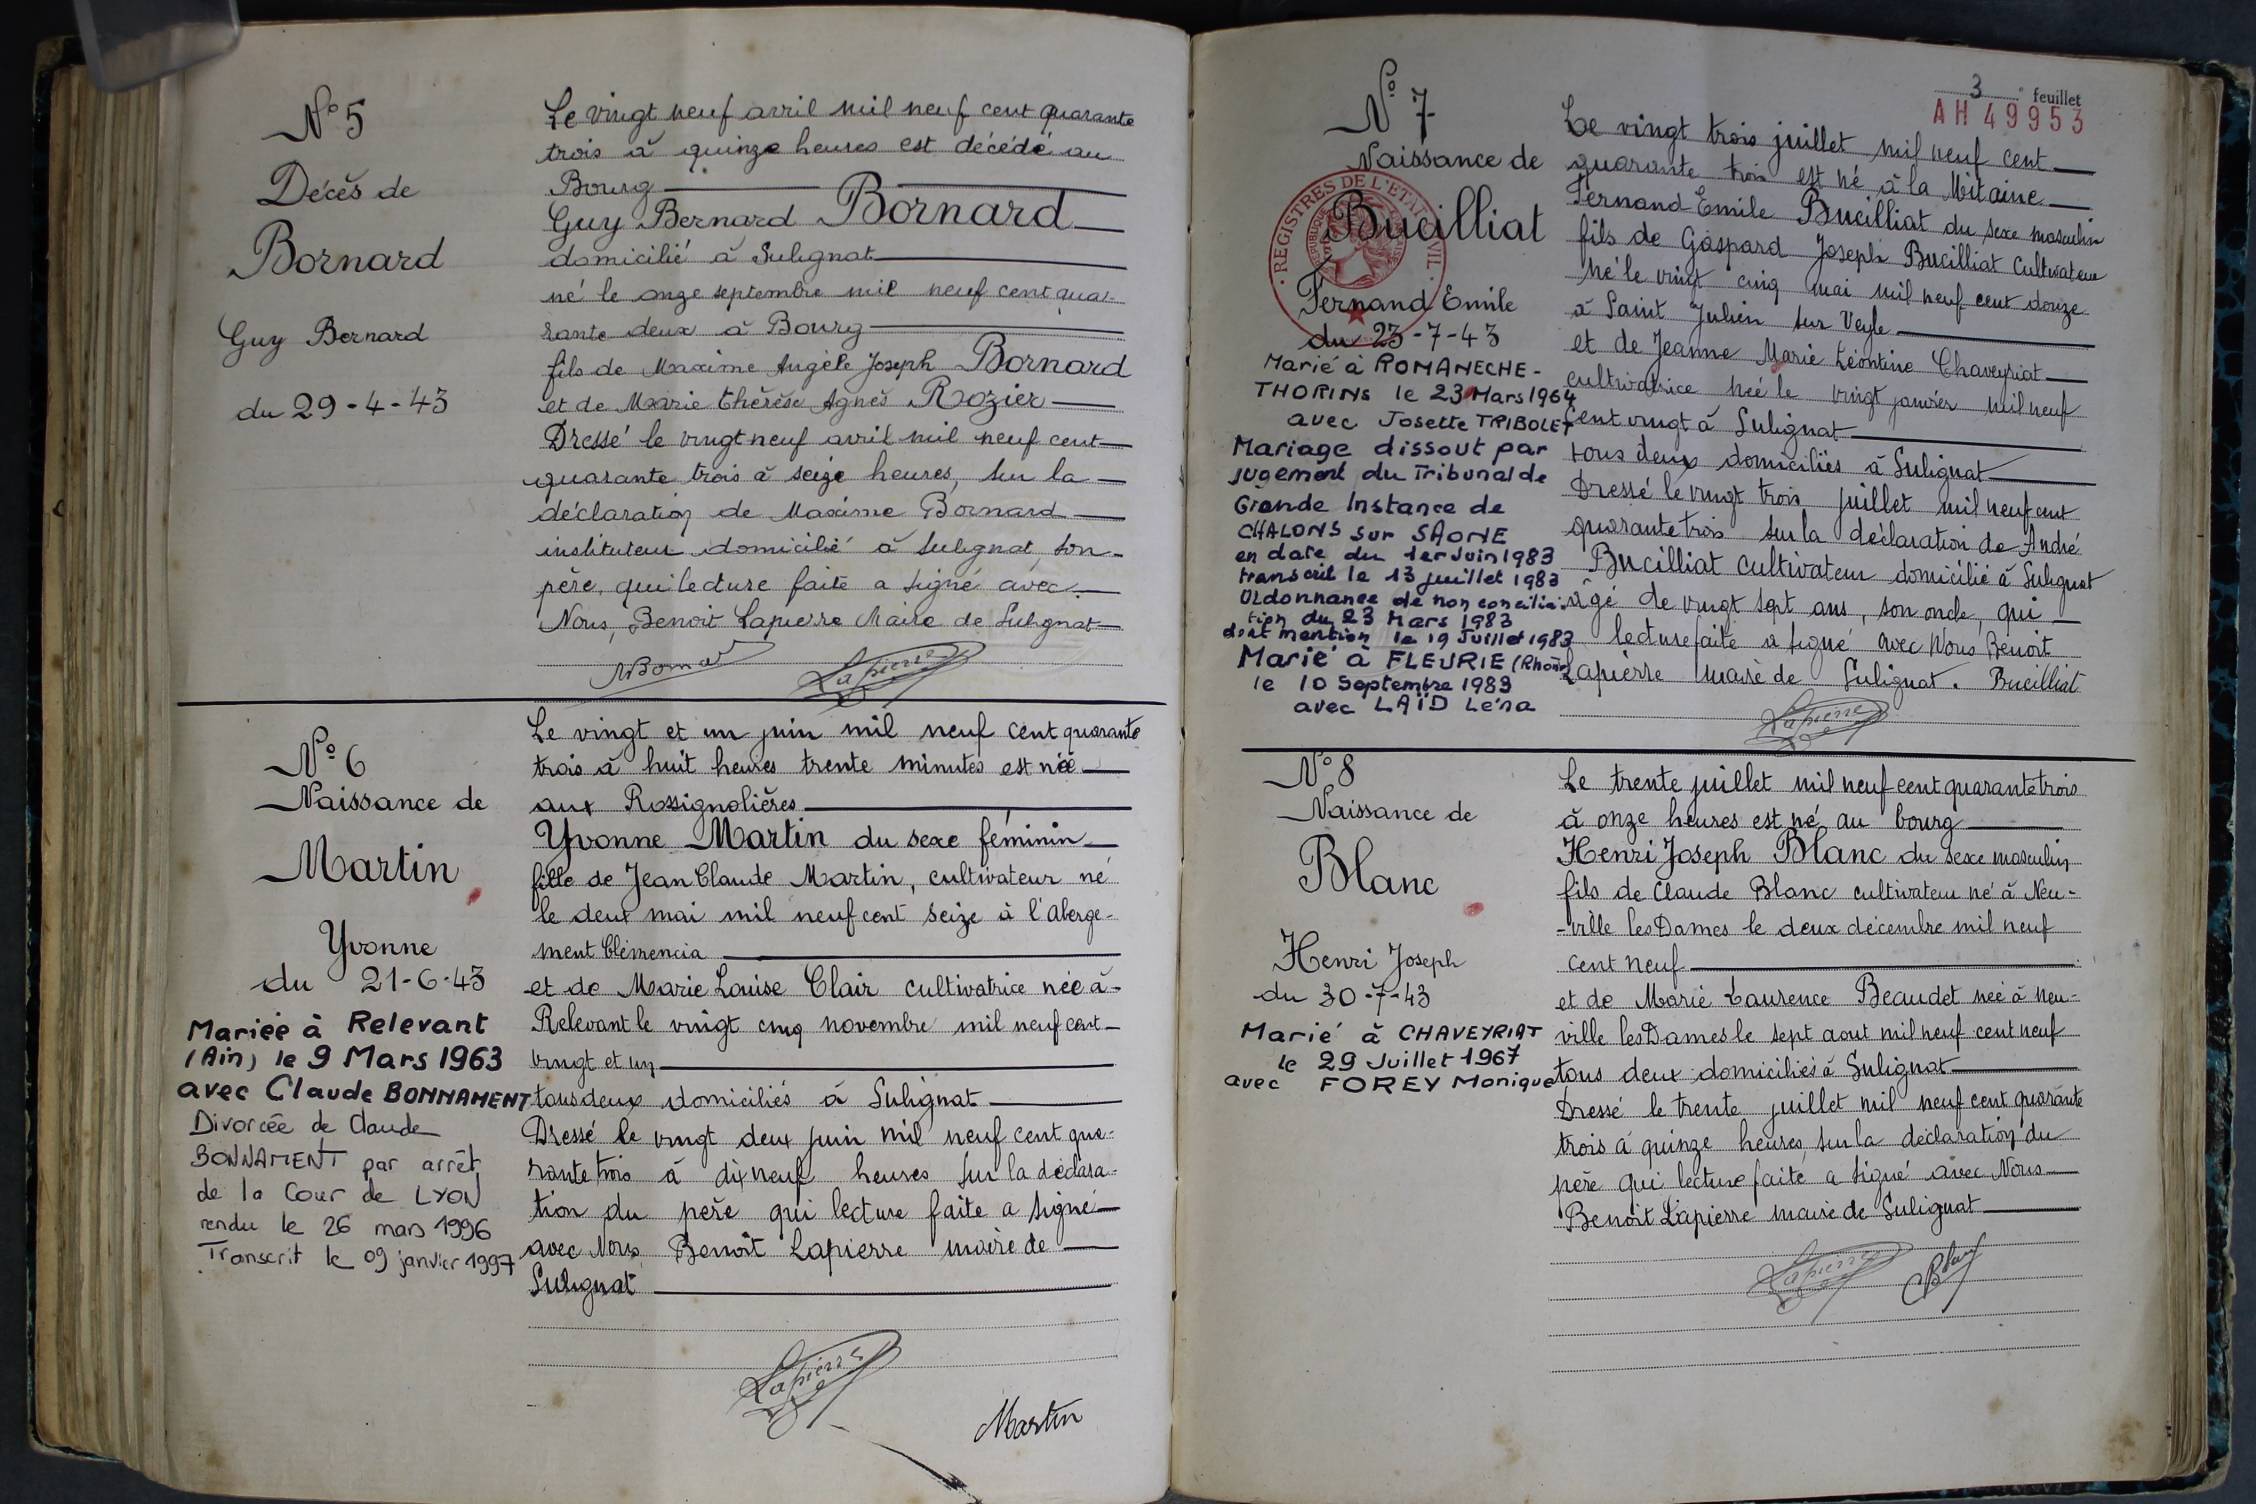 N° 5
Décès de
Bornard
Guy Bernard
du 29-4-43
Le vingt neuf avril mil neuf cent quarante
trois à quinze heures est décédé au
Bourg
Guy Bernard Bornard
domicilié à Sulignat
né le onze septembre mil neuf cent qua-
rante deux à Bourg
fils de Maxime Angèle Joseph Bornard
et de Marie thérèse Agnès Rozier
Dressé le vingt neuf avril mil neuf cent
quarante trois à seize heures, sur la
déclaration de Maxime Bornard
instituteur domicilié à Sulignat, son
père, qui lecture faite a signé avec
Nous, Benoit Lapierre Maire de Sulignat
MBornard Lapierre
N° 6
Naissance de
Martin
Yvonne
du 21-6-43
Mariée à Relevant
(Ain) le 9 Mars 1963
avec Claude BONNAMENT
Divorcée de Claude
BONNAMENT par arrêt
de la Cour de LYON
rendu le 26 mars 1996
Transcrit le 09 janvier 1997
Le vingt et un juin mil neuf cent quarante
trois à huit heures trente minutes est née
aux Rossignolières
Yvonne Martin du sexe féminin
fille de Jean Claude Martin, cultivateur né
le deux mai mil neuf cent seize à l'Aberge-
ment Clémencia
et de Marie Louise Clair cultivatrice née à
Relevant le vingt cinq novembre mil neuf cent
vingt et un
tous deux domiciliés à Sulignat
Dressé le vingt deux juin mil neuf cent qua-
rante trois à dix neuf heures sur la déclara-
tion du père qui lecture faite a signé
avec Nous Benoît Lapierre maire de
Sulignat
Lapierre
Martin
3e feuillet
AH 49953
N° 7
Naissance de
Bucilliat
REGISTRES DE L'ETAT CIVIL
Fernand Emile
du 23-7-43
Marié à ROMANECHE-
THORINS le 23 Mars 1964
avec Josette TRIBOLET
Mariage dissout par
jugement du Tribunal de
Grande Instance de
CHALONS sur SAONE
en date du 1er Juin 1983
transcrit le 13 juillet 1983
Oldonnance de non concilia-
tion du 23 Mars 1983
dont mention le 19 Juillet 1983
Marié à FLEURIE (Rhône)
le 10 Septembre 1983
avec LAÏD Léna
Le vingt trois juillet mil neuf cent
quarante trois est né à la Mitaine
Fernand Emile Bucilliat du sexe masculin
fils de Gaspard Joseph Bucilliat Cultivateur
né le vingt cinq mai mil neuf cent douze
à Saint Julien sur Veyle
et de Jeanne Marie Léontine Chaveyriat
cultivatrice née le vingt janvier mil neuf
cent vingt à Sulignat
tous deux domiciliés à Sulignat
Dressé le vingt trois juillet mil neuf cent
quarante trois sur la déclaration de André
Bucilliat cultivateur domicilié à Sulignat
âgé de vingt sept ans, son oncle, qui
lecture faite a signé avec Nous Benoît
Lapierre maire de Sulignat. Bucilliat
Lapierre
N° 8
Naissance de
Blanc
Henri Joseph
du 30-7-43
Marié à CHAVEYRIAT
le 29 Juillet 1967
avec FOREY Monique
Le trente juillet mil neuf cent quarante trois
à onze heures est né au bourg
Henri Joseph Blanc du sexe masculin
fils de Claude Blanc cultivateur né à Neu-
-ville les Dames le deux décembre mil neuf
cent neuf
et de Marie Laurence Beaudet née à Neu-
ville les Dames le sept aout mil neuf cent neuf
tous deux domiciliés à Sulignat
Dressé le trente juillet mil neuf cent quarante
trois à quinze heures, sur la déclaration du
père qui lecture faite a signé avec Nous
Benoît Lapierre maire de Sulignat
Lapierre Blanc